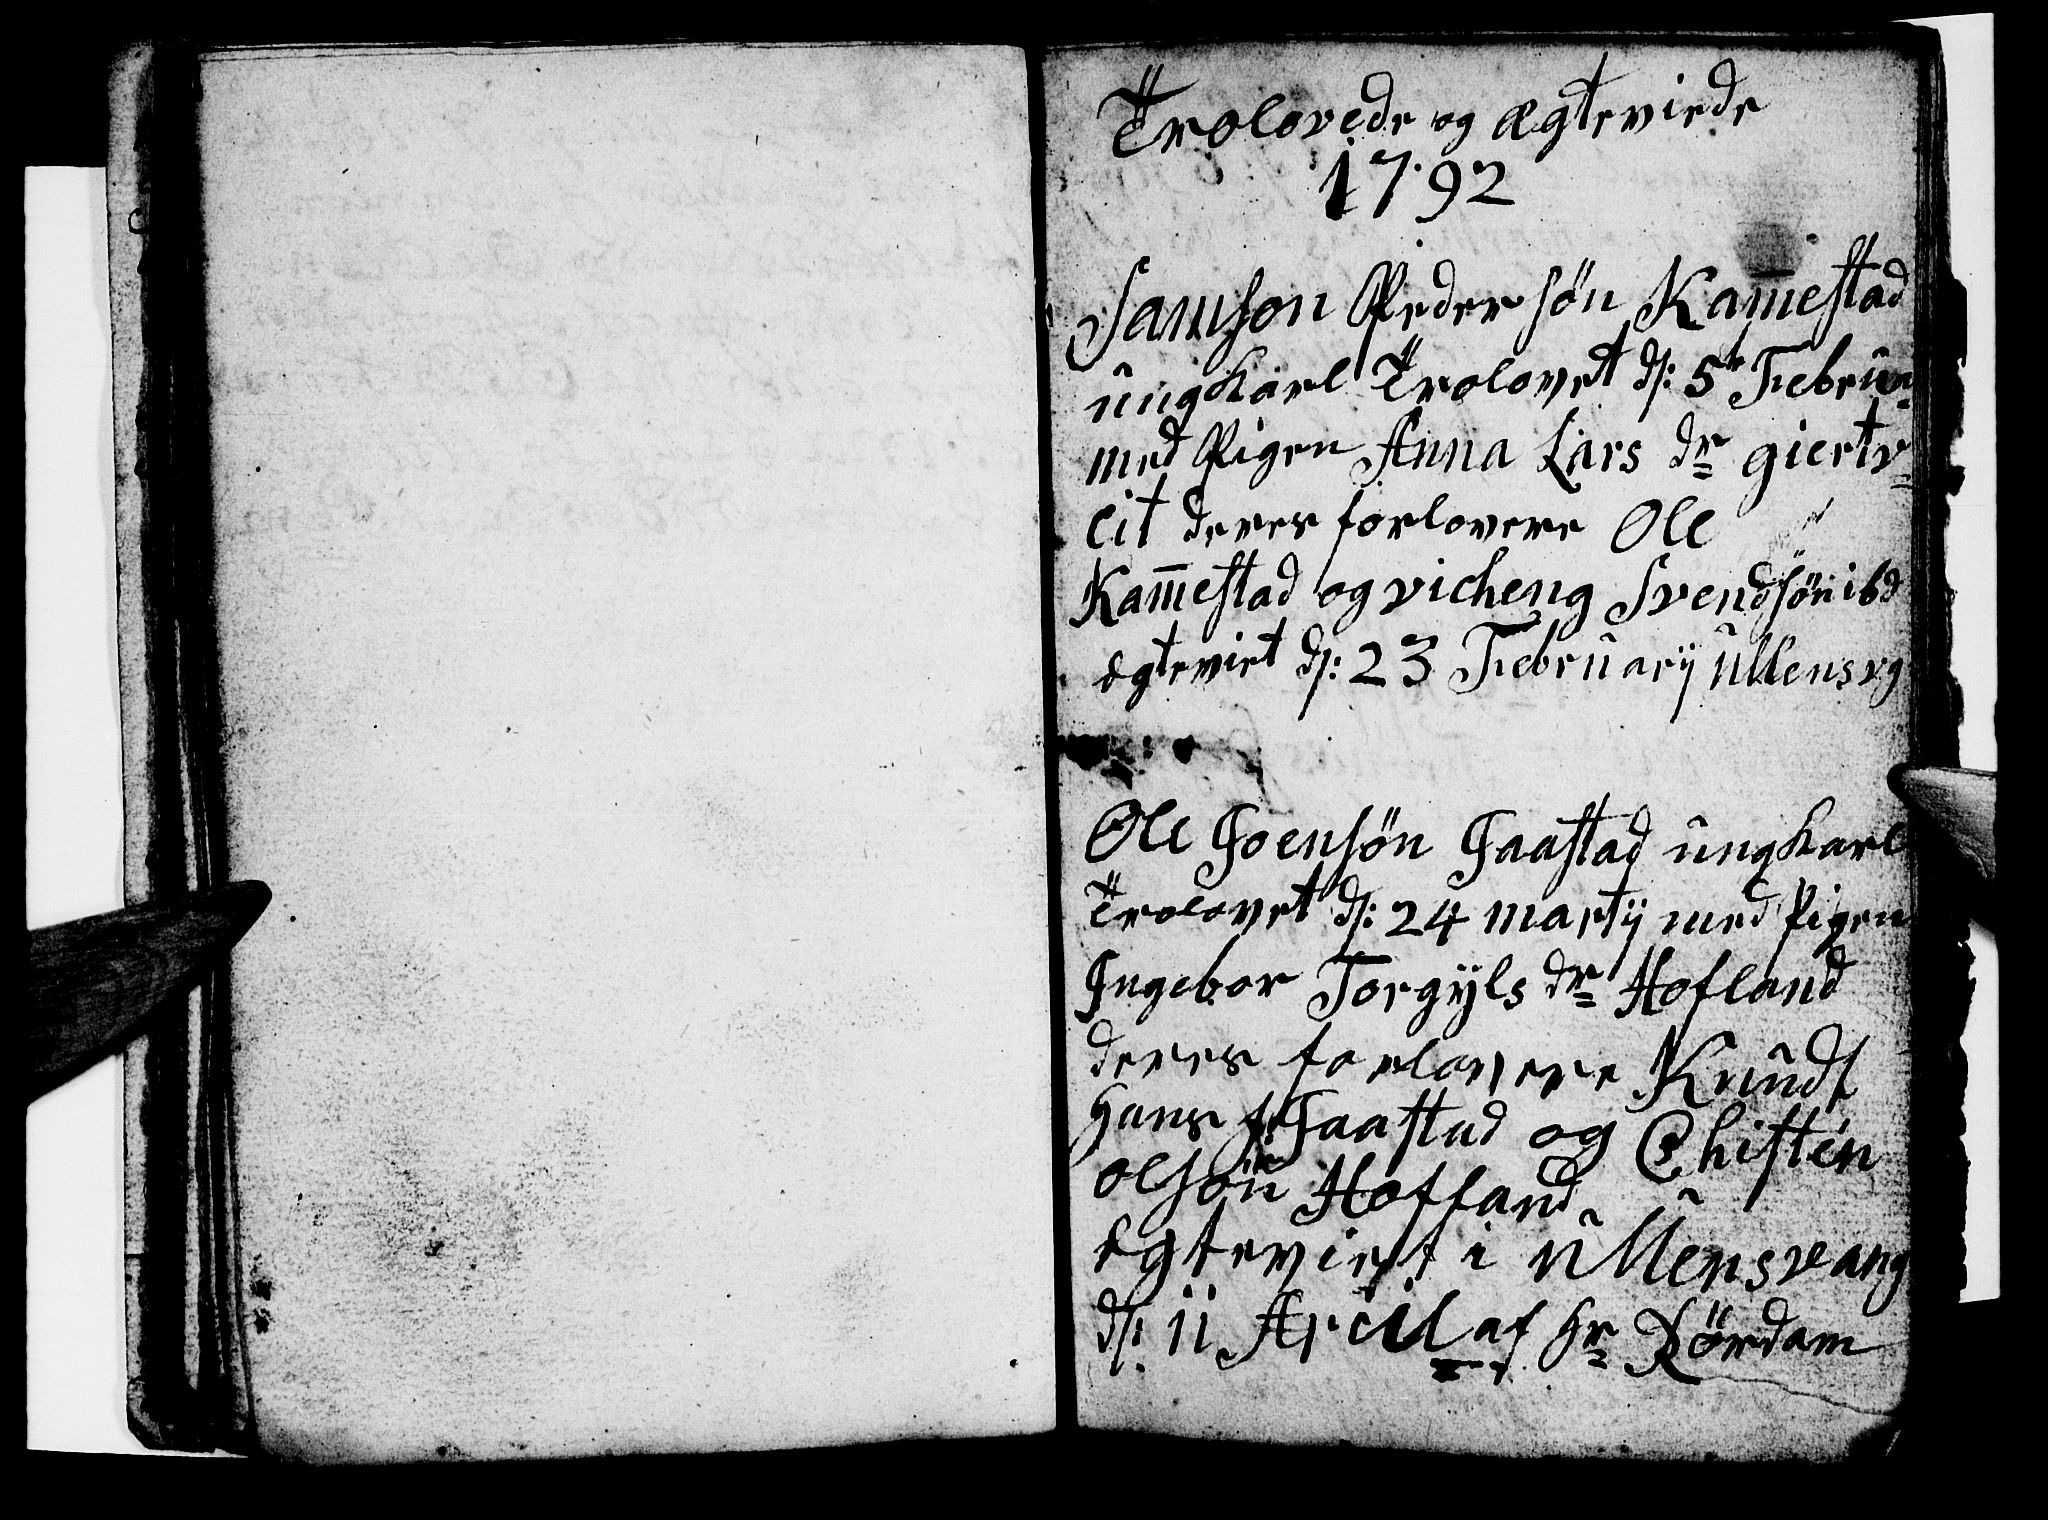 Trolovede og ægteviede
1792
Samson Peder søn Kam̅estad
ungkarl Trolovet d: 5te Februa-
med Pigen Anna Lars dr giertv-
eit deres forlovere Ole
Kam̅estad og vicheng Svendsøn ibd
egteviet d: 23 Februarij Ullensvg
Ole Joensøn Jaastad ungkarl
Trolovet d: 24 martij med Pigen
Ingebor Torgÿls dr Hofland
deres forlovere Knudt
Hans s: Jaastad og Chistén
olsøn Hofland
egteviet i Ullensveang
d: 11 April af Hr Rördam